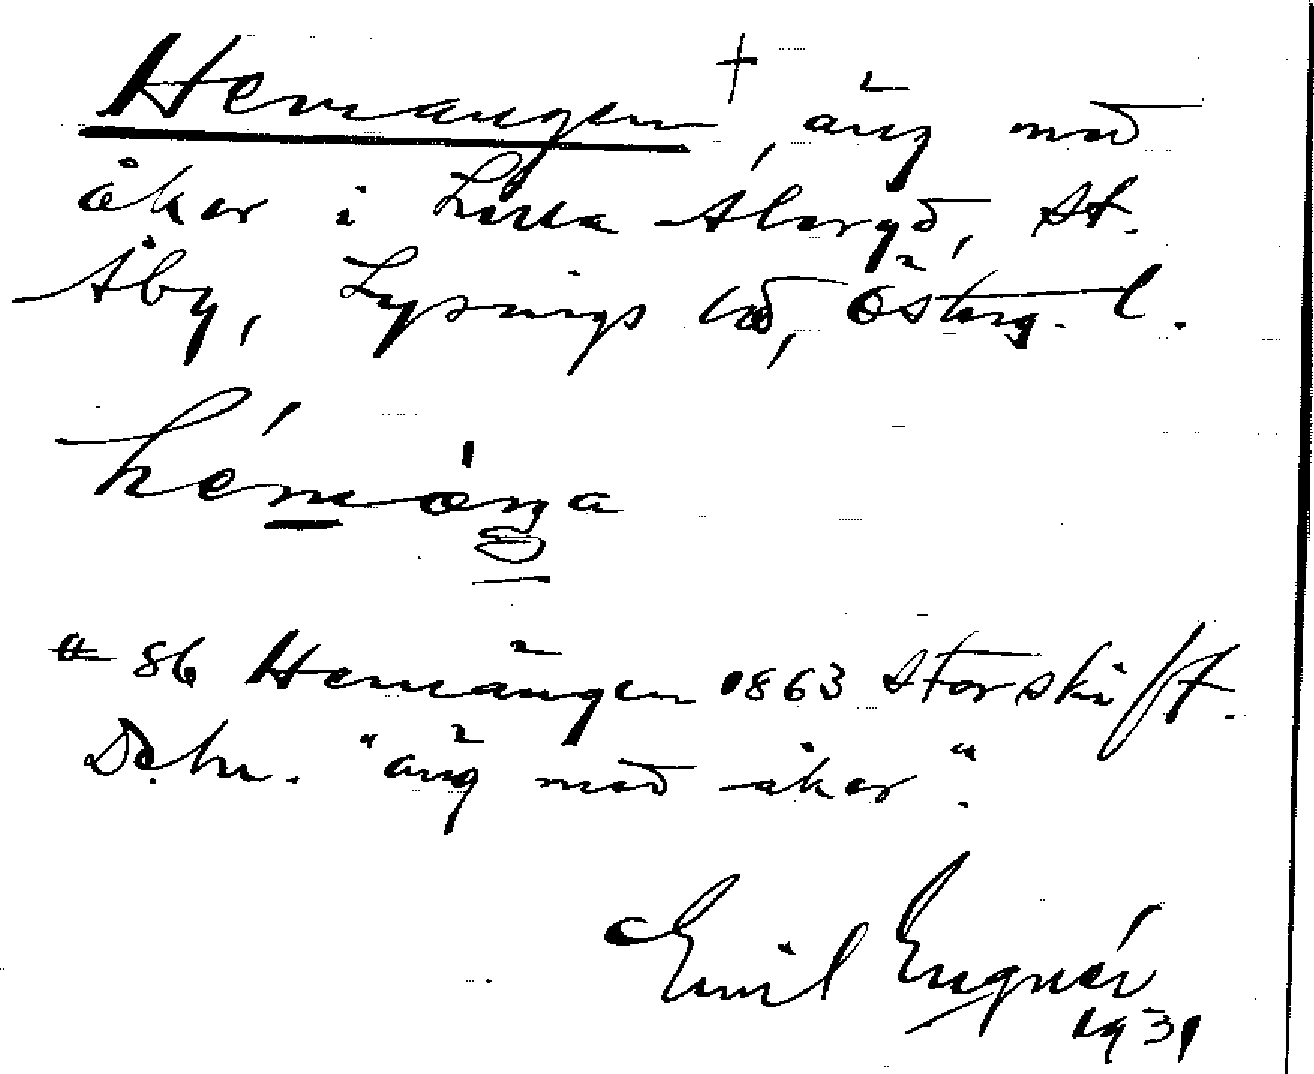 Hemängen †, äng med
åker i Lilla Åbergd, St.
Åby, Lysings hd, Österg. l.
hémäŋa
# 86 Hemängen 1863 Storskift.
Beskr. "äng med åker".
Emil Engnér
1931